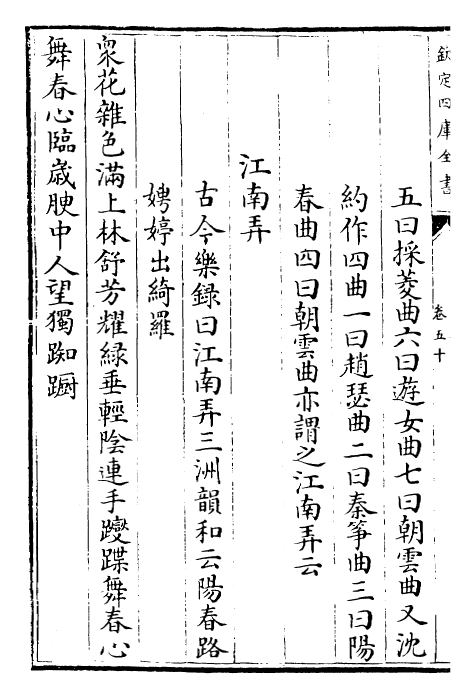 欽定四庫全書
卷五十
五曰採菱曲六曰遊女曲七曰朝雲曲又沈
約作四曲一曰趙瑟曲二曰秦筝曲三曰陽
春曲四曰朝雲曲亦謂之江南弄云
江南弄
古今樂録曰江南弄三洲韻和云陽春路
娉婷出綺羅
衆花雜色滿上林舒芳耀緑垂輕陰連手躞蹀舞春心
舞春心臨歲腴中人望獨踟蹰